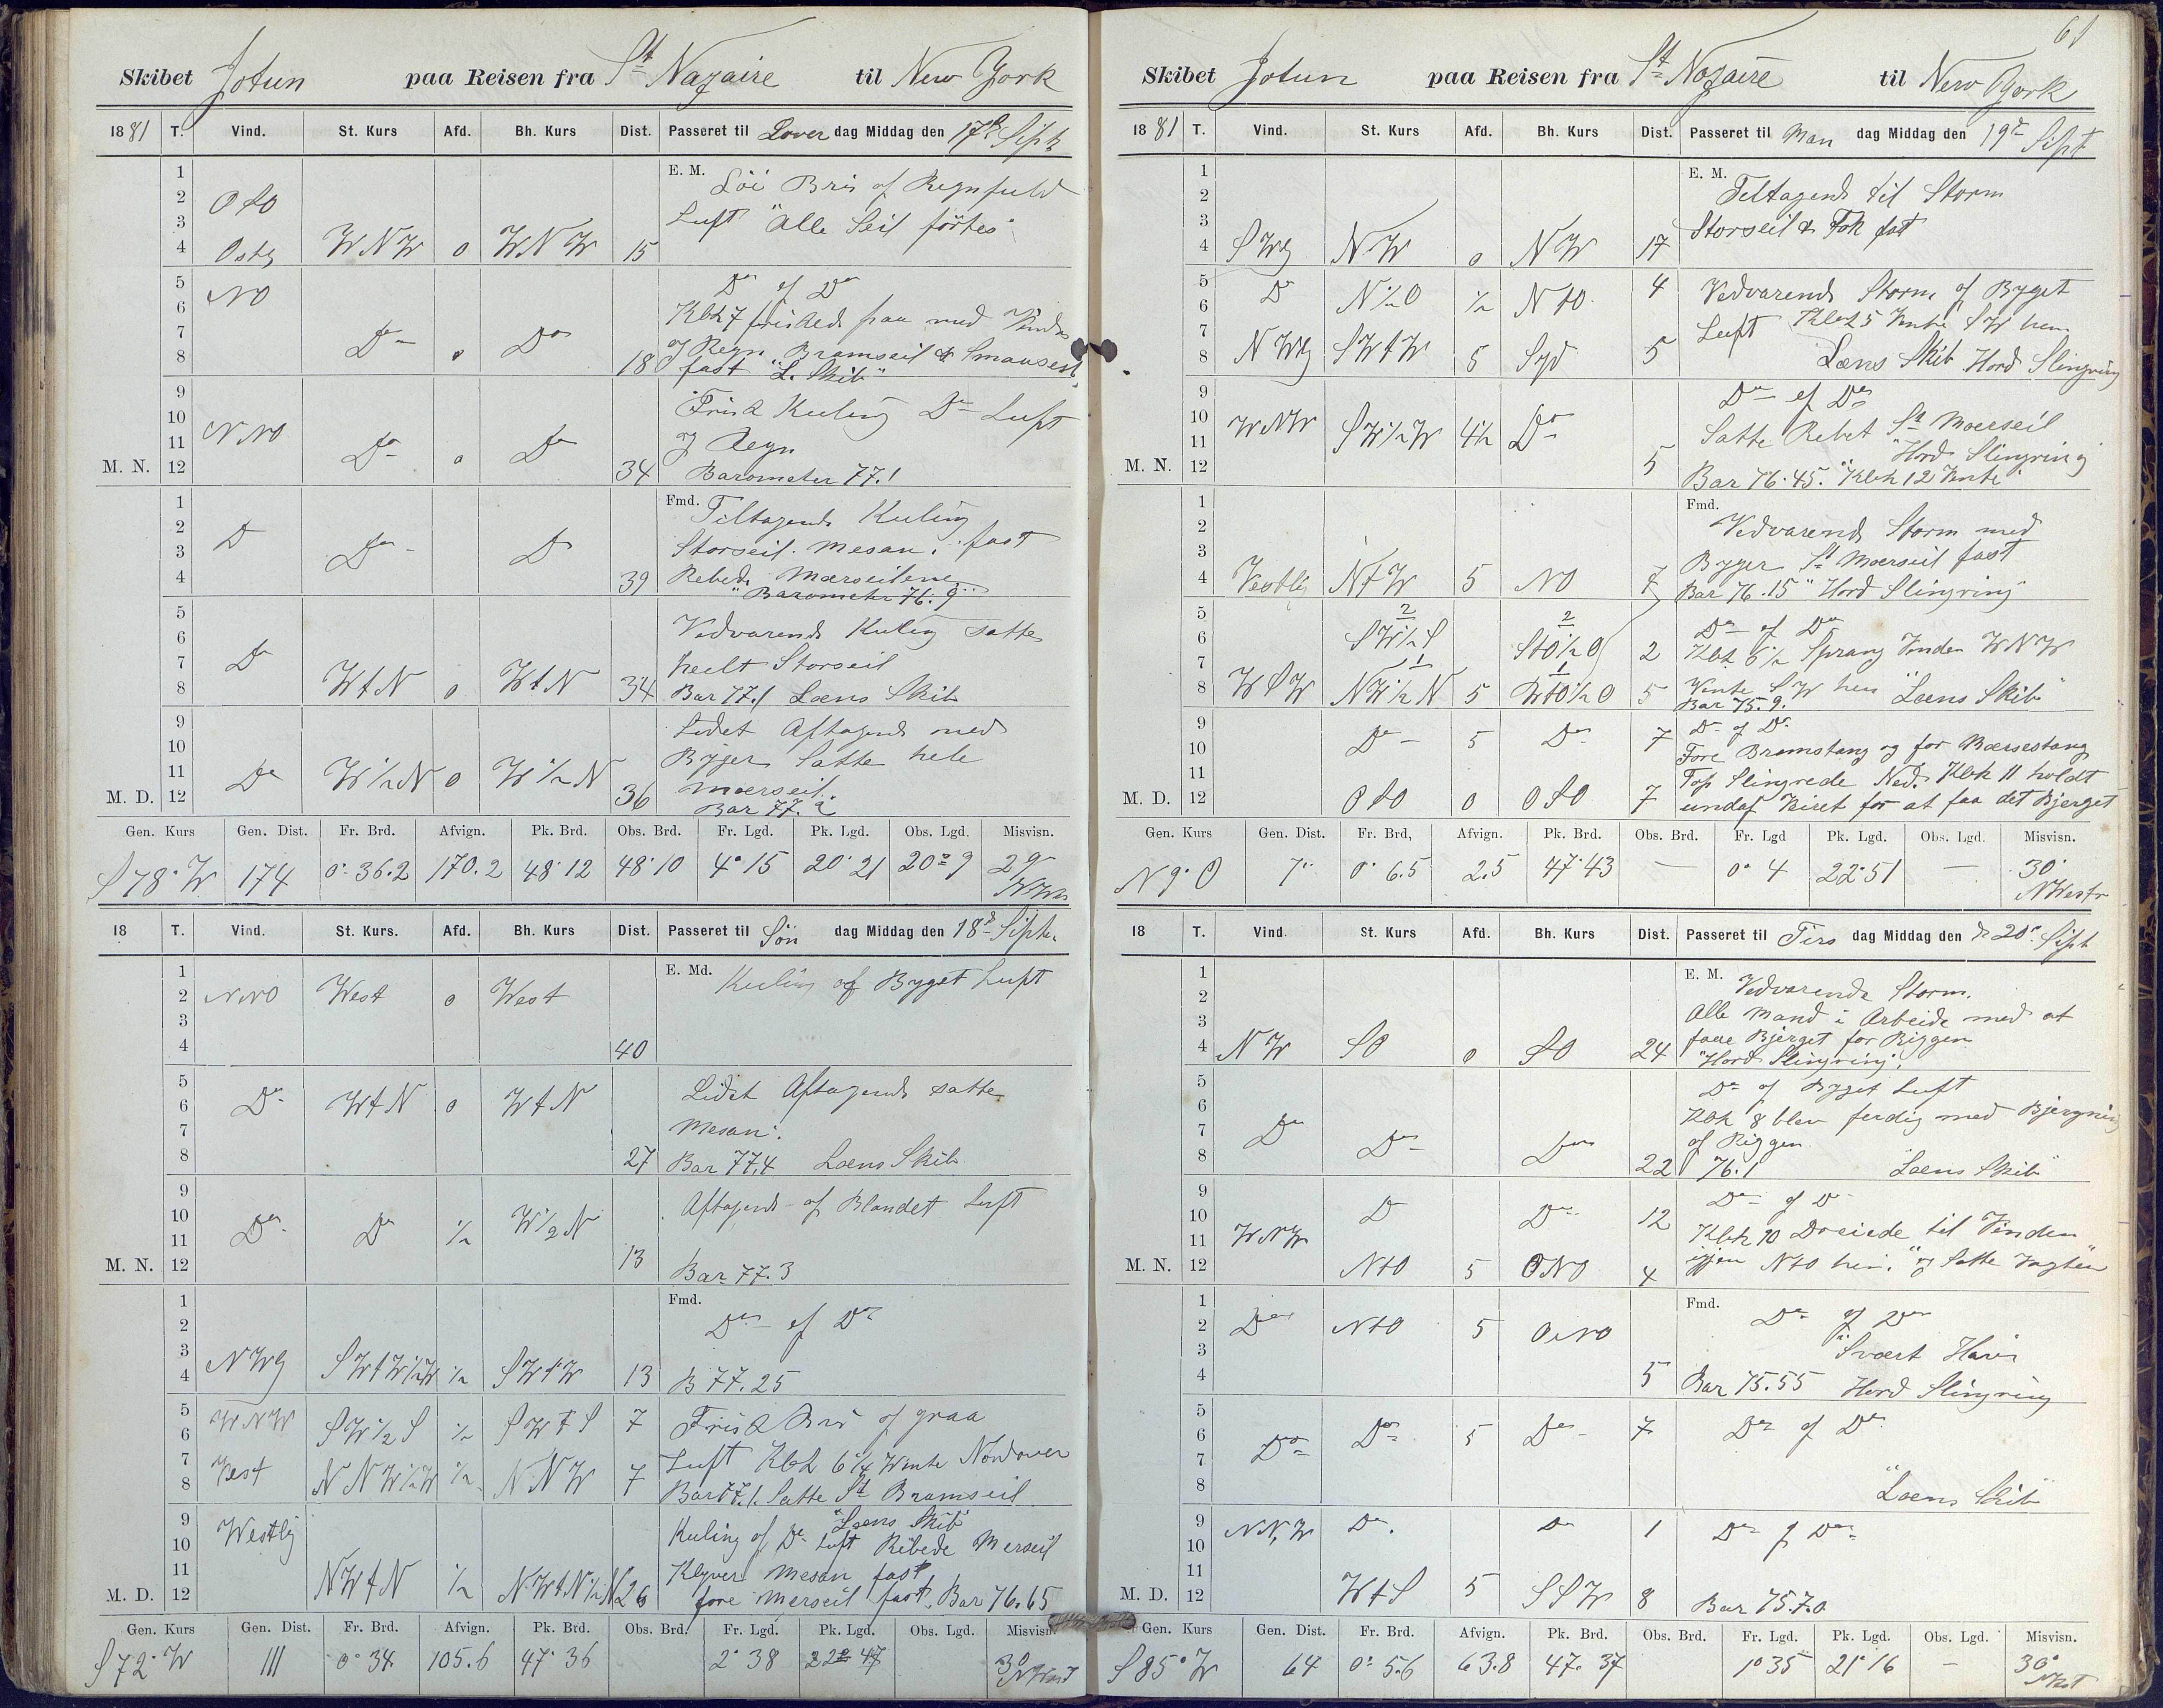 Skibet Jotun paa Reisen fra St Nazaire til New York
1881 T. Vind. St. Kurs Afd. Bh. Kurs Dist. Passeret til Löver dag Middag den 17de Sept
E. M. Löi Bris of Regnfuld
OtO Luft "Alle Seil förtes"
Ostlg WNW 0 WNW 15
NO Do of Do
Klok 7 friskede paa med Vinden
Do 0 Do 18 og Regn Bramseil & 
fast "L. Skib"
Frisk Kuling Do Luft
NNO Do 0 Do og Regn
M. N. 12 34 Barometer 77.1
Fmd. Tiltagende Kuling
Do Do Do Storseil. Mesan. fast
39 Rebede Mærseilene
"Barometer 76.9"
Vedvarende Kuling satte
Do heelt Storseil
WtN 0 WtN 34 Bar 77.1 Læns Skib
Lidet Aftagende med
Byger Satte hele
Do W½N 0 W½N 36 Mærseil.
M. D. 12 Bar 77.2
Gen. Kurs Gen. Dist. Fr. Brd. Afvign. Pk. Brd. Obs. Brd. Fr. Lgd. Pk. Lgd. Obs. Lgd. Misvisn.
S78°W 174 0°36.2 170.2 48°12 48°10 4°15 20°21 20°9 29°
18 T. Vind. St. Kurs. Afd. Bh. Kurs Dist. Passeret til Sön dag Middag den 18de Sept.
E. Md. Kuling of Byget Luft
NNO West 0 West
40
Do WtN 0 WtN Lidet Aftagende satte
Mesan.
27 Bar 77.4 Læns Skib
Aftagende of Blandet Luft
Do Do ½ W½N 13
M. N. 12 Bar 77.3
Fmd. Do of Do
NWlg SWtW½W ½ SWtW 13 B 77.25
WNW SW½S ½ SWtS 7 Frisk Bris of graa
Luft Klok 6¼ Vente Nordover
Vest NNW½W ½ NNW 7 Bar 77.1. Satte St Bramseil
"Læns Skib"
Westlig Kuling of Do Luft Rebede Merseil
Klyver Mesan fast
M. D. 12 NWtN ½ NWtN½N 26 fore Merseil fast. Bar 76.65
Gen. Kurs Gen. Dist. Fr. Brd. Afvign. Pk. Brd. Obs. Brd. Fr. Lgd. Pk. Lgd. Obs. Lgd. Misvisn.
S72°W 111 0°34 105.6 47°36 2°38 22°47 30°
N Vest
61
Skibet Jotun paa Reisen fra St Nazaire til New York
1881 T. Vind. St. Kurs Afd. Bh. Kurs Dist. Passeret til Man dag Middag den 19de Sept
E. M. Tiltagende til Storm
Storseil & Fok fast
SWlg NW 0 NW 17
Do N½O ½ NtO 4 Vedvarende Storm of Byget
Luft Klok 5 Vente SW hen
NWlg SWtW 5 Syd 5 Læns Skib Hord Slingring
Do of Do
WNW SW½W 4½ Do Satte Rebet St Mærseil
5 "Hord Slingring
M. N. 12 Bar 76.45. "Klok 12 Vente"
Fmd. Vedvarende Storm med
Byger St Mærseil fast
Vestlig NtW 5 NO 7 Bar 76.15 "Hord Slingring
2 2 Do of Do
SW½S StO½O 2 Klok 6½ Sprang Vinden WNW
1 1
WSW NW½N 5 NtO½O 5 Vente SW hen "Læns Skib"
Bar 75.9.
Do 5 Do 7 Do of Do
Fore Bramstang og for Mærsestang
Top Slingrede Ned. Klok 11 holdt
M. D. 12 OtO 0 OtO 7 undaf Veiret for at faa det Bjerget
Gen. Kurs Gen. Dist. Fr. Brd, Afvign. Pk. Brd. Obs. Brd. Fr. Lgd Pk. Lgd. Obs. Lgd. Misvisn.
N9°O 7" 0°6.5 2.5 47°43 — 0°4 22°51 — 30°
N Westr
18 T. Vind St. Kurs Afd. Bh. Kurs Dist. Passeret til Tirs dag Middag den d 20de Sept
E. M. Vedvarende Storm.
Alle Mand i Arbeide med at
NW SO 0 SO 24 faae Bjerget for Riggen
"Hord Slingring".
Do of Byget Luft
Klok 8 blev ferdig med Bjergning
Do Do Do af Riggen
22 76.1 "Læns Skib"
Do Do 12 Do of Do
WNW Klok 10 Dreiede til Vinden
M. N. 12 NtO 5 ONO 4 igjen NtO hen. "og Satte Vagten"
Fmd.
Do NtO 5 ONO Do of Do
"Svært Hav"
5 Bar 75.55 Hord Slingring
Do Do 5 Do 7 Do of Do
"Læns Skib"
NNW Do. Do 1 Do of Do
M. D. 12 WtS 5 SSW 8 Bar 75.70
Gen. Kurs Gen. Dist. Fr. Brd. Afvign. Pk. Brd. Obs. Brd. Fr. Lgd. Pk. Lgd. Obs. Lgd. Misvisn.
S85°W 64 0°5.6 63.8 47°37 1°35 21°16 — 30°